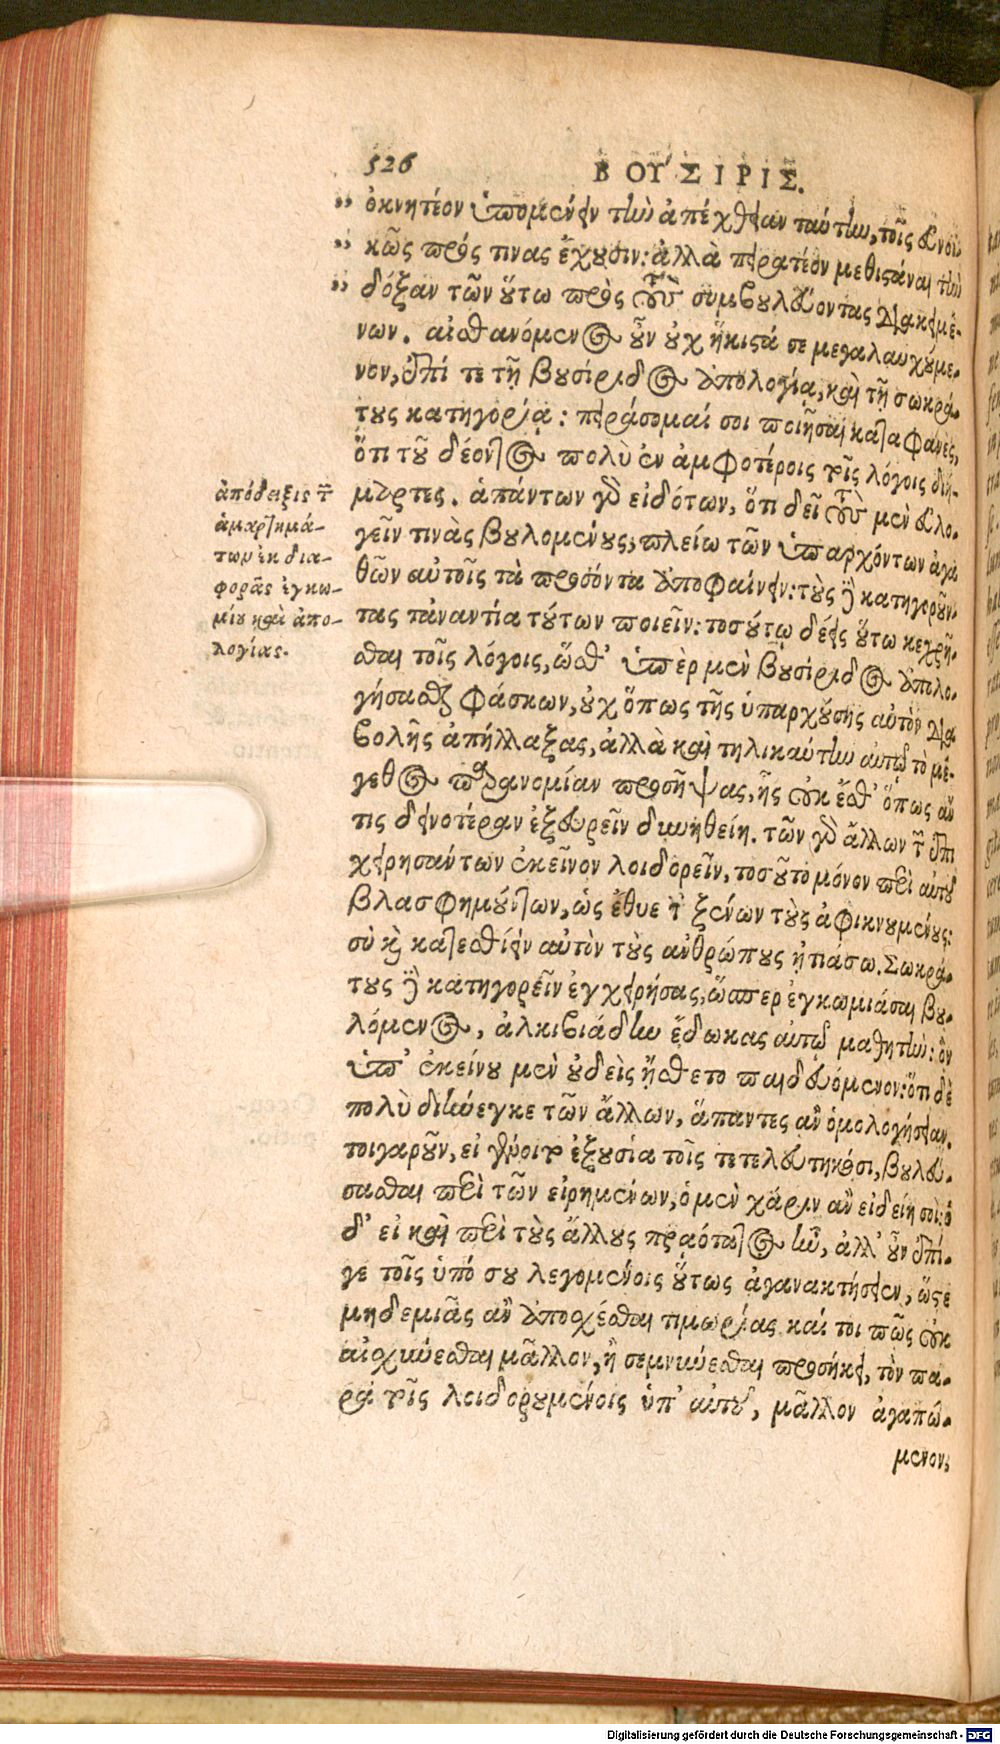 526 ΒΟΥΣΙΡΙΣ.
„ ὀκνητέον ὑπομένειν τὴν ἀπέχθειαν ταύτην, τοῖς εὐνοϊ-
„ κῶς πρός τινας ἔχουσιν: ἀλλὰ πειρατέον μεθιστάναι τὴν
„ δόξαν τῶν οὕτω πρὸς τοὺς συμβουλεύοντας διακειμέ-
νων. αἰσθανόμενος οὖν οὐχ ἥκιστά σε μεγαλαυχούμε-
νον, ἐπί τε τῇ βουσίριδος ἀπολογίᾳ, καὶ τῇ σωκρά-
τους κατηγορίᾳ: πειράσομαί σοι ποιῆσαι καταφανὲς,
ὅτι τοῦ δέοντος πολὺ ἐν ἀμφοτέροις τοῖς λόγοις διή-
μαρτες. ἁπάντων γὰρ εἰδότων, ὅτι δεῖ τοὺς μὲν εὐλο-
γεῖν τινὰς βουλομένους, πλείω τῶν ὑπαρχόντων ἀγα-
θῶν αὐτοῖς τὰ προσόντα ἀποφαίνειν: τοὺς δὲ κατηγοροῦν-
τας τἀναντία τούτων ποιεῖν: τοσούτῳ δέεις οὕτω κεχρῆ-
σθαι τοῖς λόγοις, ὥσθ’ ὑπὲρ μὲν βουσίριδος ἀπολο-
γήσασθαι φάσκων, οὐχ ὅπως τῆς ὑπαρχούσης αὐτὸν δια
βολῆς ἀπήλλαξας, ἀλλὰ καὶ τηλικαύτην αὐτῷ τὸ μέ-
γεθος παρανομίαν προσῆψας, ἧς οὐκ ἔσθ’ ὅπως ἄν
τις δεινοτέραν ἐξευρεῖν δυνηθείη. τῶν γὰρ ἄλλων τῶν ἐπι
χειρησάντων ἐκεῖνον λοιδορεῖν, τοσοῦτο μόνον περὶ αὐτοῦ
βλασφημούντων, ὡς ἔθυε τῶν ξένων τοὺς ἀφικνουμένους:
σὺ καὶ κατεσθίειν αὐτὸν τοὺς ἀνθρώπους ᾐτιάσω. Σωκρά-
τους δὲ κατηγορεῖν ἐγχειρήσας, ὥσπερ ἐγκωμιάσαι βου-
λόμενος, ἀλκιβιάδην ἔδωκας αὐτῷ μαθητήν: ὃν
ὑπ’ ἐκείνου μὲν οὐδεὶς ᾔσθετο παιδευόμενον: ὅτι δὲ
πολὺ διήνεγκε τῶν ἄλλων, ἅπαντες ἂν ὁμολογήσειαν.
τοιγαροῦν, εἰ γένοιτο ἐξουσία τοῖς τετελευτηκόσι, βουλεύ-
σασθαι περὶ τῶν εἰρημένων, ὁ μὲν χάριν ἂν εἰδείη σοι: ὁ
δ’ εἰ καὶ περὶ τοὺς ἄλλους πρᾳότατος ἦν, ἀλλ’ οὖν ἐπί-
γε τοῖς ὑπό σου λεγομένοις οὕτως ἀγανακτήσειεν, ὥστε
μηδεμιᾶς ἂν ἀποσχέσθαι τιμωρίας καί τοι πῶς οὐκ
αἰσχύνεσθαι μᾶλλον, ἢ σεμνύνεσθαι προσήκει, τὸν πα-
ρὰ τοῖς λοιδορουμένοις ὑπ’ αὐτοῦ, μᾶλλον ἀγαπώ-
μενον,
ἀπόδειξις τῶν
ἁμαρτημά-
των ἐκ δια-
φορᾶς ἐγκω-
μίου καὶ ἀπο-
λογίας.
Digitalisierung gefördert durch die Deutsche Forschungsgemeinschaft - DFG